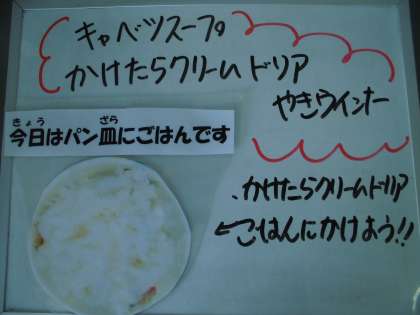 キャベツスープ
かけたらクリームドリア
やきウインナー
きょう ざら
今日はパン皿にごはんです
、かけたらクリームドリア
←ごはんにかけよう!!